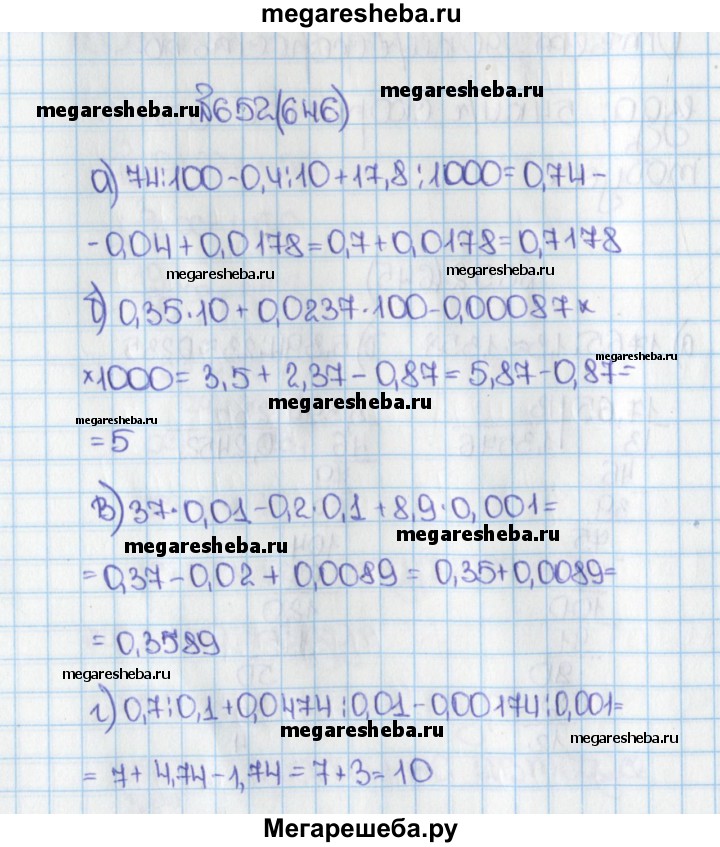 megaresheba.ru
megaresheba.ru
megaresheba.ru
№652(646)
а) 74:100-0,4:10+17,8:1000=0,74-
-0,04+0,0178=0,7+0,0178=0,7178
megaresheba.ru
megaresheba.ru
б) 0,35·10+0,0237·100-0,00087×
megaresheba.ru
×1000=3,5+2,37-0,87=5,87-0,87=
megaresheba.ru
megaresheba.ru
=5
в) 37·0,01-0,2·0,1+8,9·0,001=
megaresheba.ru
megaresheba.ru
=0,37-0,02+0,0089=0,35+0,0089=
=0,3589
megaresheba.ru
г) 0,7:0,1+0,0474:0,01-0,00174:0,001=
megaresheba.ru
megaresheba.ru
=7+4,74-1,74=7+3=10
Мегарешеба.ру